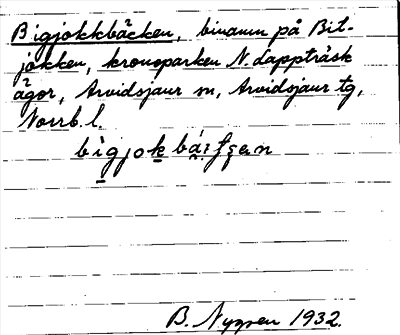 Bigjokkbäcken, binamn på Bit-
jokken, kronoparken N. Lappträsk
ägor, Arvidsjaur sn, Arvidsjaur tg,
Norrb. l.
B. Nygren 1932.